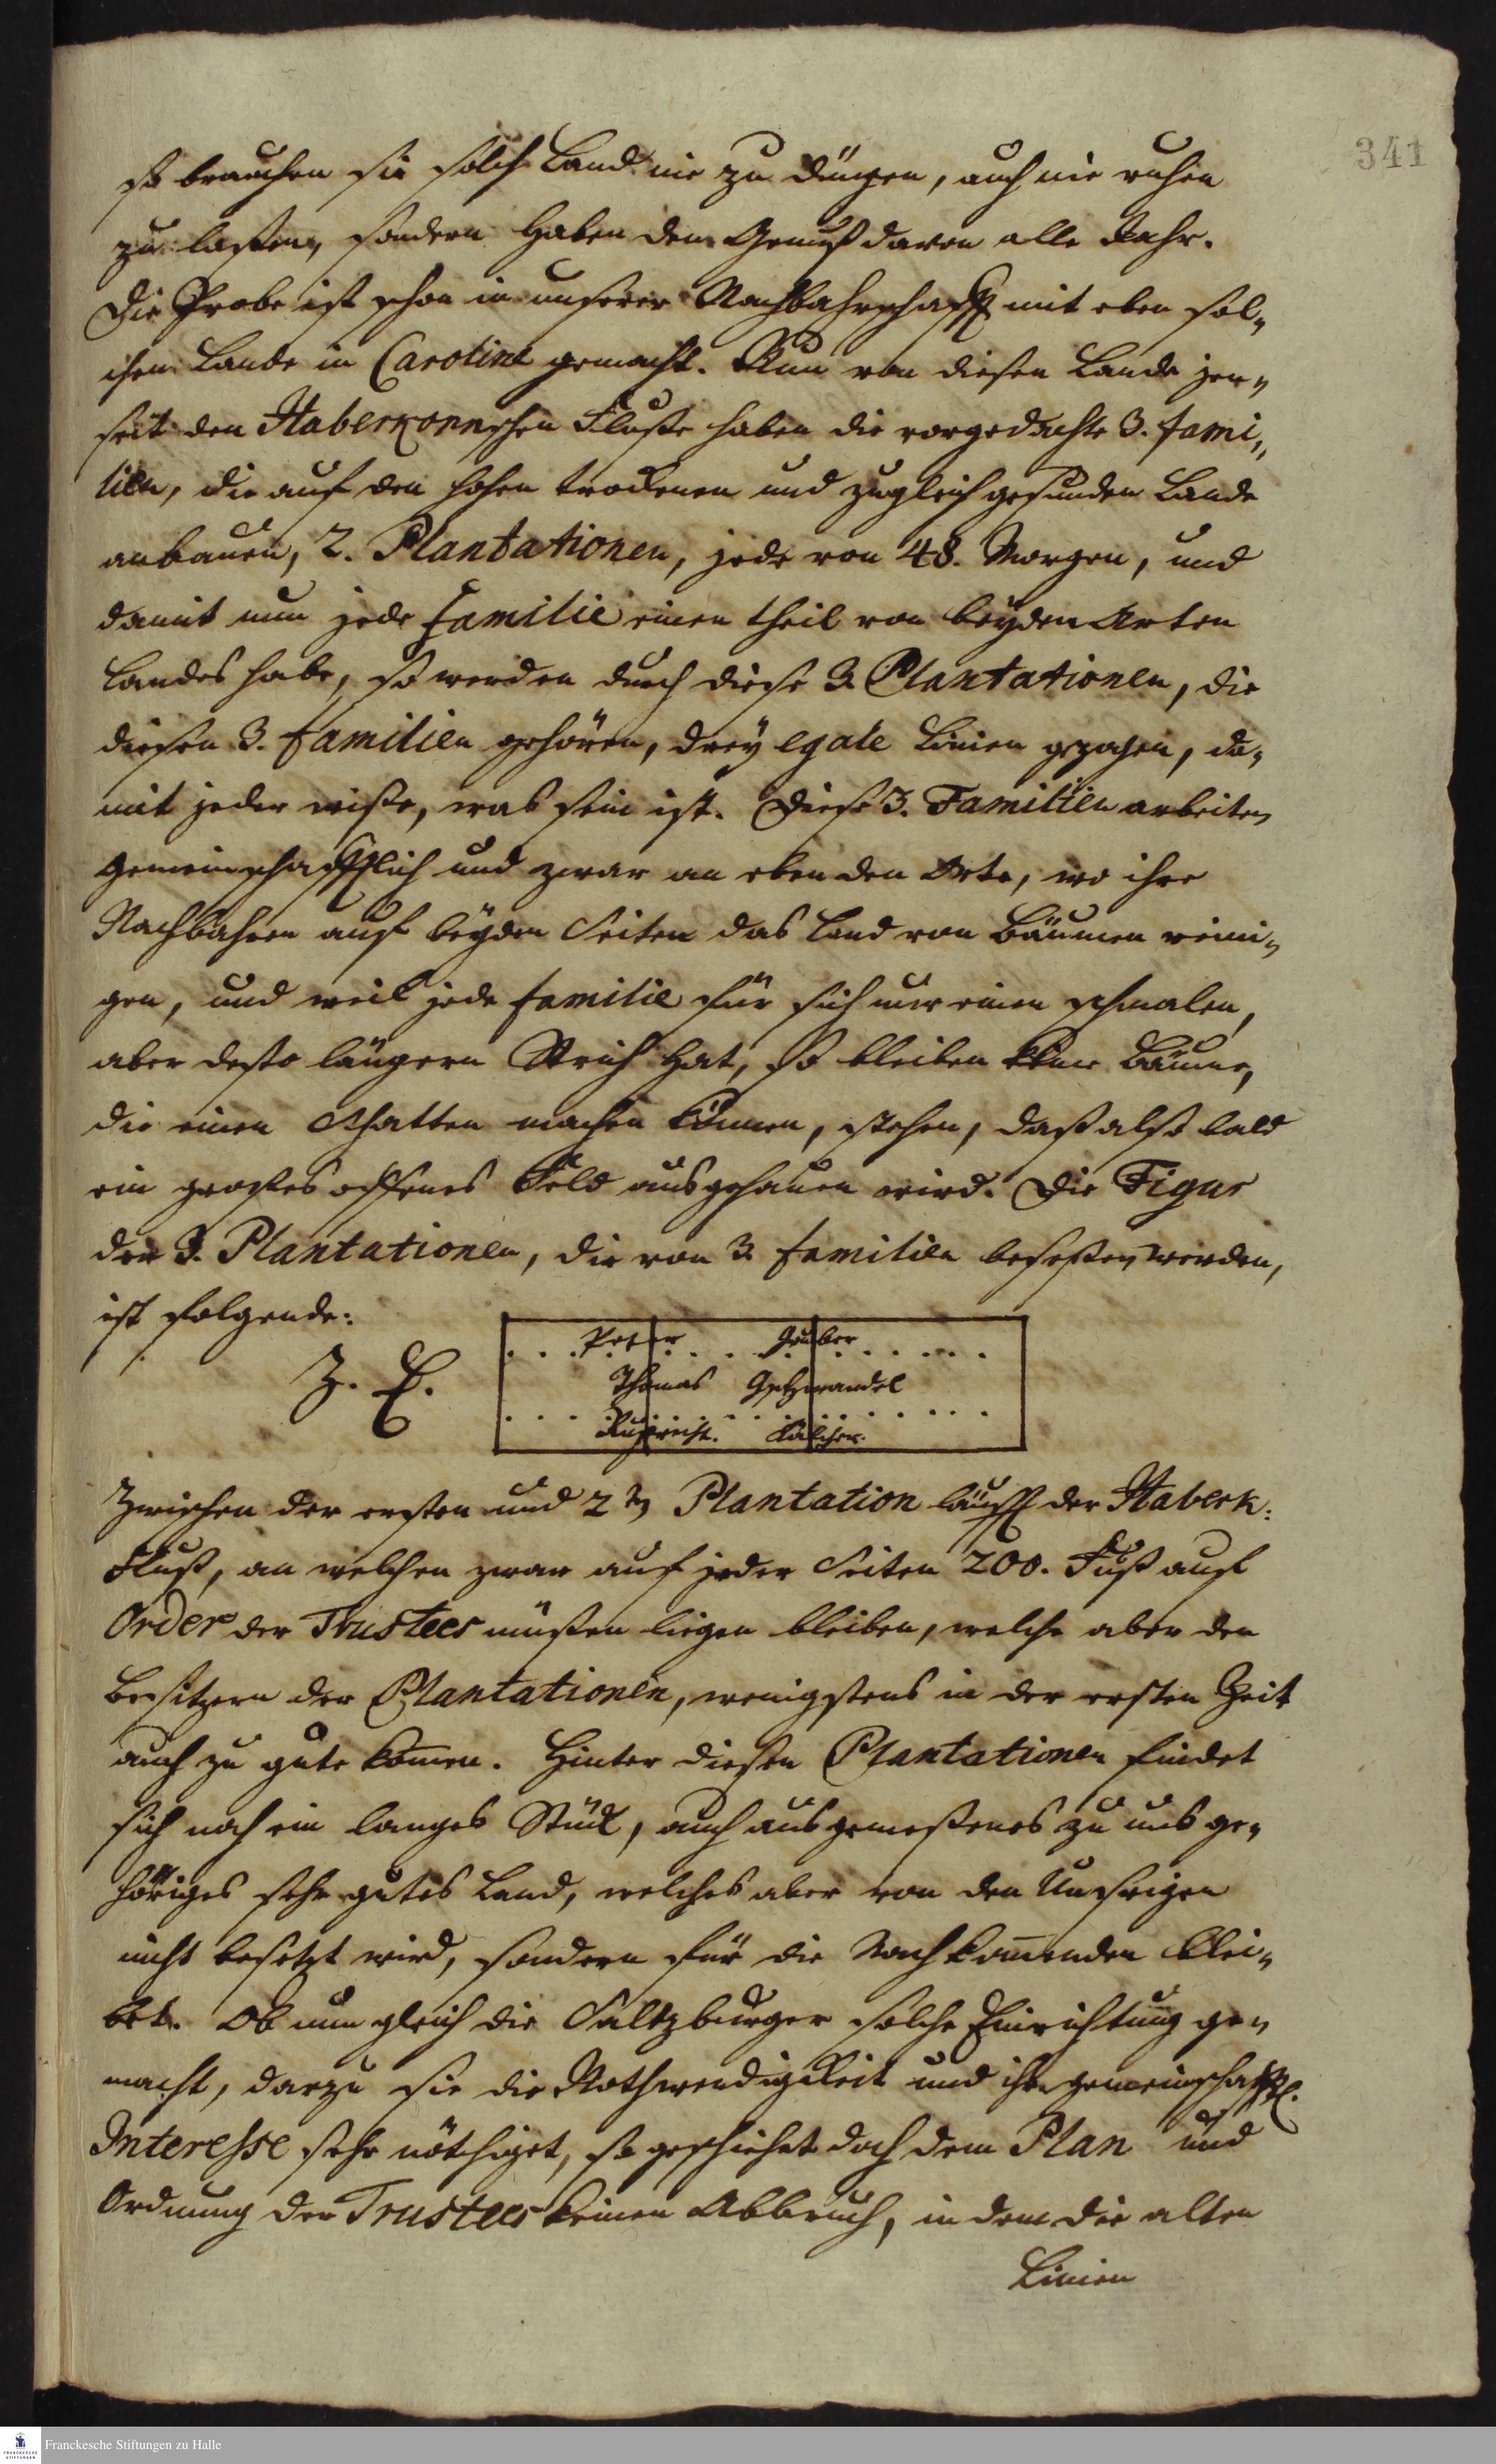 341
so brauchen sie solch Land nie zu düngen, auch nie ruhen
zu laßen, sondern haben den Genuß davon alle Jahr.
Die Probe ist schon in unserer Nachbahrschafft mit eben sol-
chen Lande in Carolina gemacht. Nun von diesen Lande jen-
seit den Haberkornschen Fluße haben die vorgedachte 3. Fami-
lien, die auf den hohen trockenen und zugleich gesunden Lande
anbauen, 2. Plantationen, jede von 48. Morgen, und
damit nun jede Familie einen theil von beyden Arten
Landes habe, so werden durch diese 3. Plantationen, die
diesen 3. Familien gehören, drey egale Linien gezogen, da-
mit jeder wiße, was sein ist. Diese 3. Familien arbeiten
gemeinschafftlich und zwar an eben den Orte, wo ihre
Nachbahren auf beyden Seiten das Land von Bäumen reini-
gen, und weil jede Familie für sich nur einen schmalen,
aber desto längern Strich hat, so bleiben keine Bäume,
die einen Schatten machen können, stehen, daß also bald
ein großes offenes Feld ausgehauen wird. Die Figur
der 3. Plantationen, die von 3. Familien beseßen werden,
ist folgende:
Z. E.
Peter Gruber
Thomas Gschwandel
Ruprecht Kalcher.
Zwischen der ersten und 2ten Plantation läufft der Haberk:
Fluß, an welchen zwar auf jeder Seiten 200. Fuß auf
Order der Trustees müßen liegen bleiben, welche aber den
Besitzern der Plantationen, wenigstens in der ersten Zeit
auch zu gute kom̅en. Hinter diesen Plantationen findet
sich noch ein langes Stück, auch ausgemeßenes zu uns ge-
höriges sehr gutes Land, welches aber von den Unsrigen
nicht besetzt wird, sondern für die Nachkom̅enden blei-
bet. Ob nun gleich die Saltzburger solche Einrichtung ge-
macht, darzu sie die Nothwendigkeit und ihr gemeinschafftl.
Interesse sehr nöthiget, so geschiehet doch dem Plan und
Ordnung der Trustees keinen Abbruch, in dem die alten
Linien
Franckesche Stiftungen zu Halle